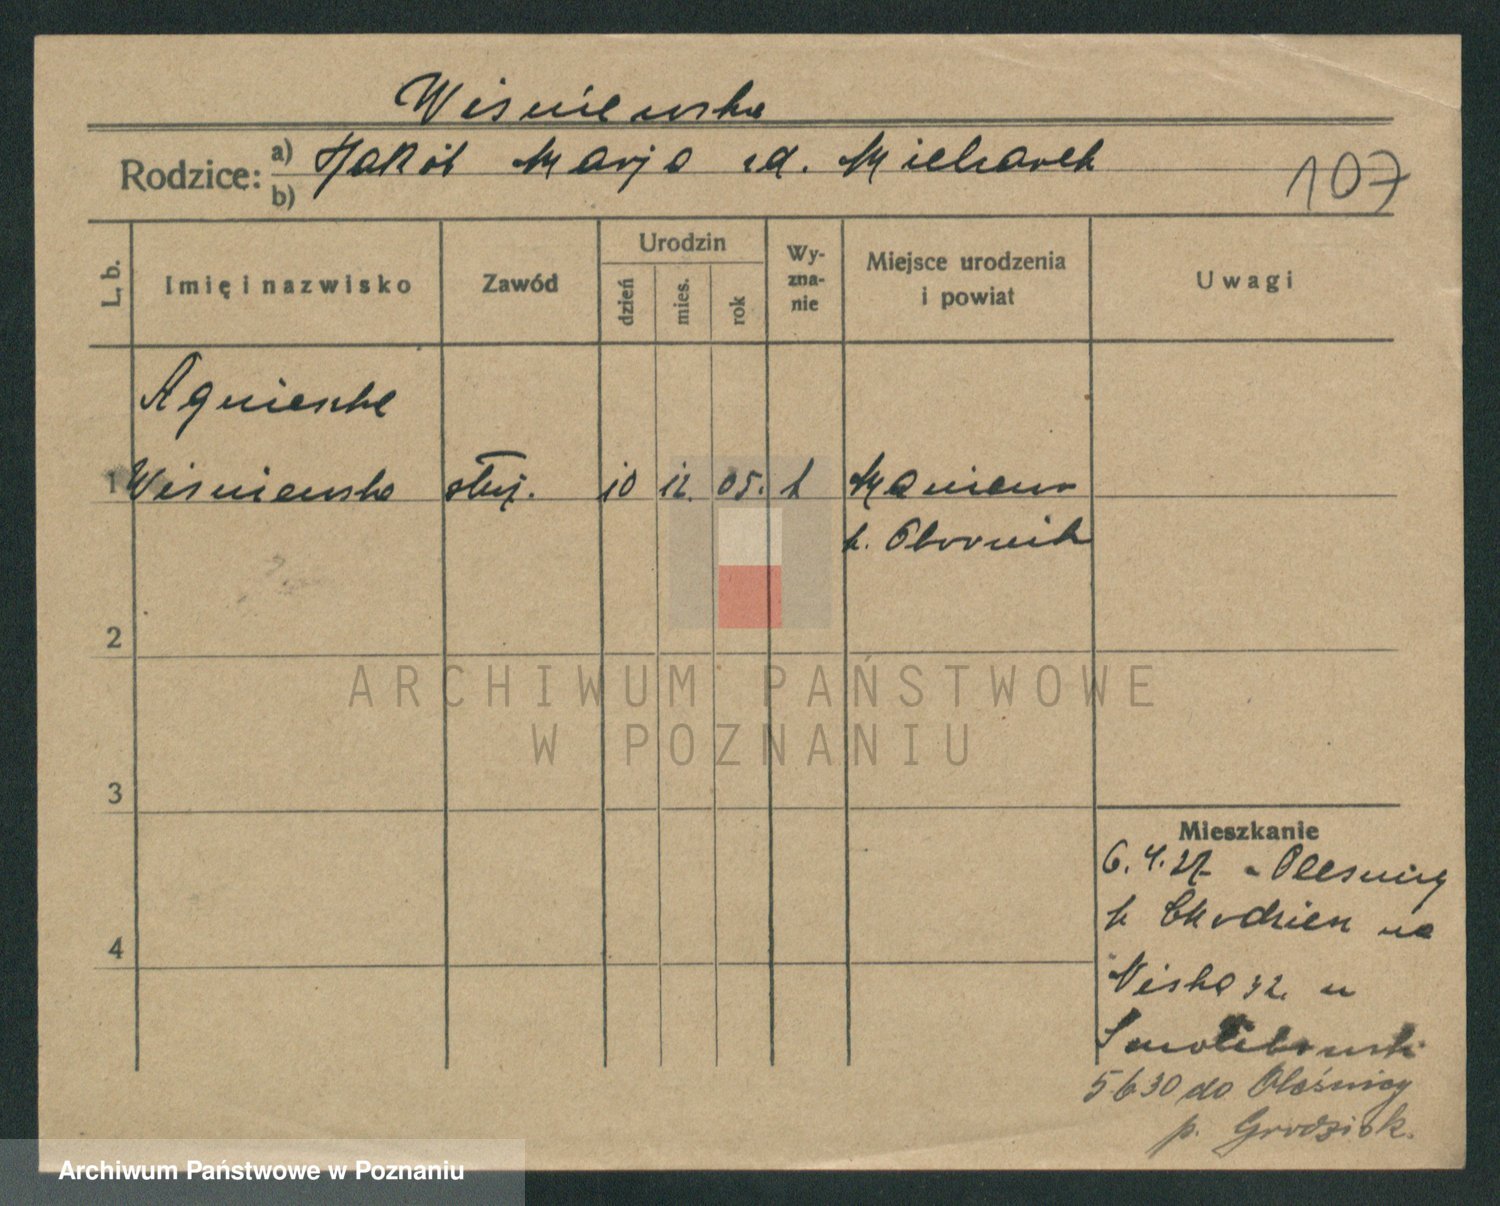 Wiśniewska
Rodzice: a) Jakób Marja zd. Micharek
b)
107
L. b.
Imię i nazwisko
Zawód
Urodzin
dzień
mies.
rok
Wy-
zna-
nie
Miejsce urodzenia
i powiat
Uwagi
Agnieszka
1 Wiśniewska służ. 10 12. 05. k Maniewo
p. Obornik
2
3
4
Mieszkanie
6. 4. 27 Oleśnicy
p. Chodzież na
Niska 32. u
5 6 30 do Oleśnicy
p. Grodzisk.
ARCHIWUM PAŃSTWOWE
W POZNANIU
Archiwum Państwowe w Poznaniu